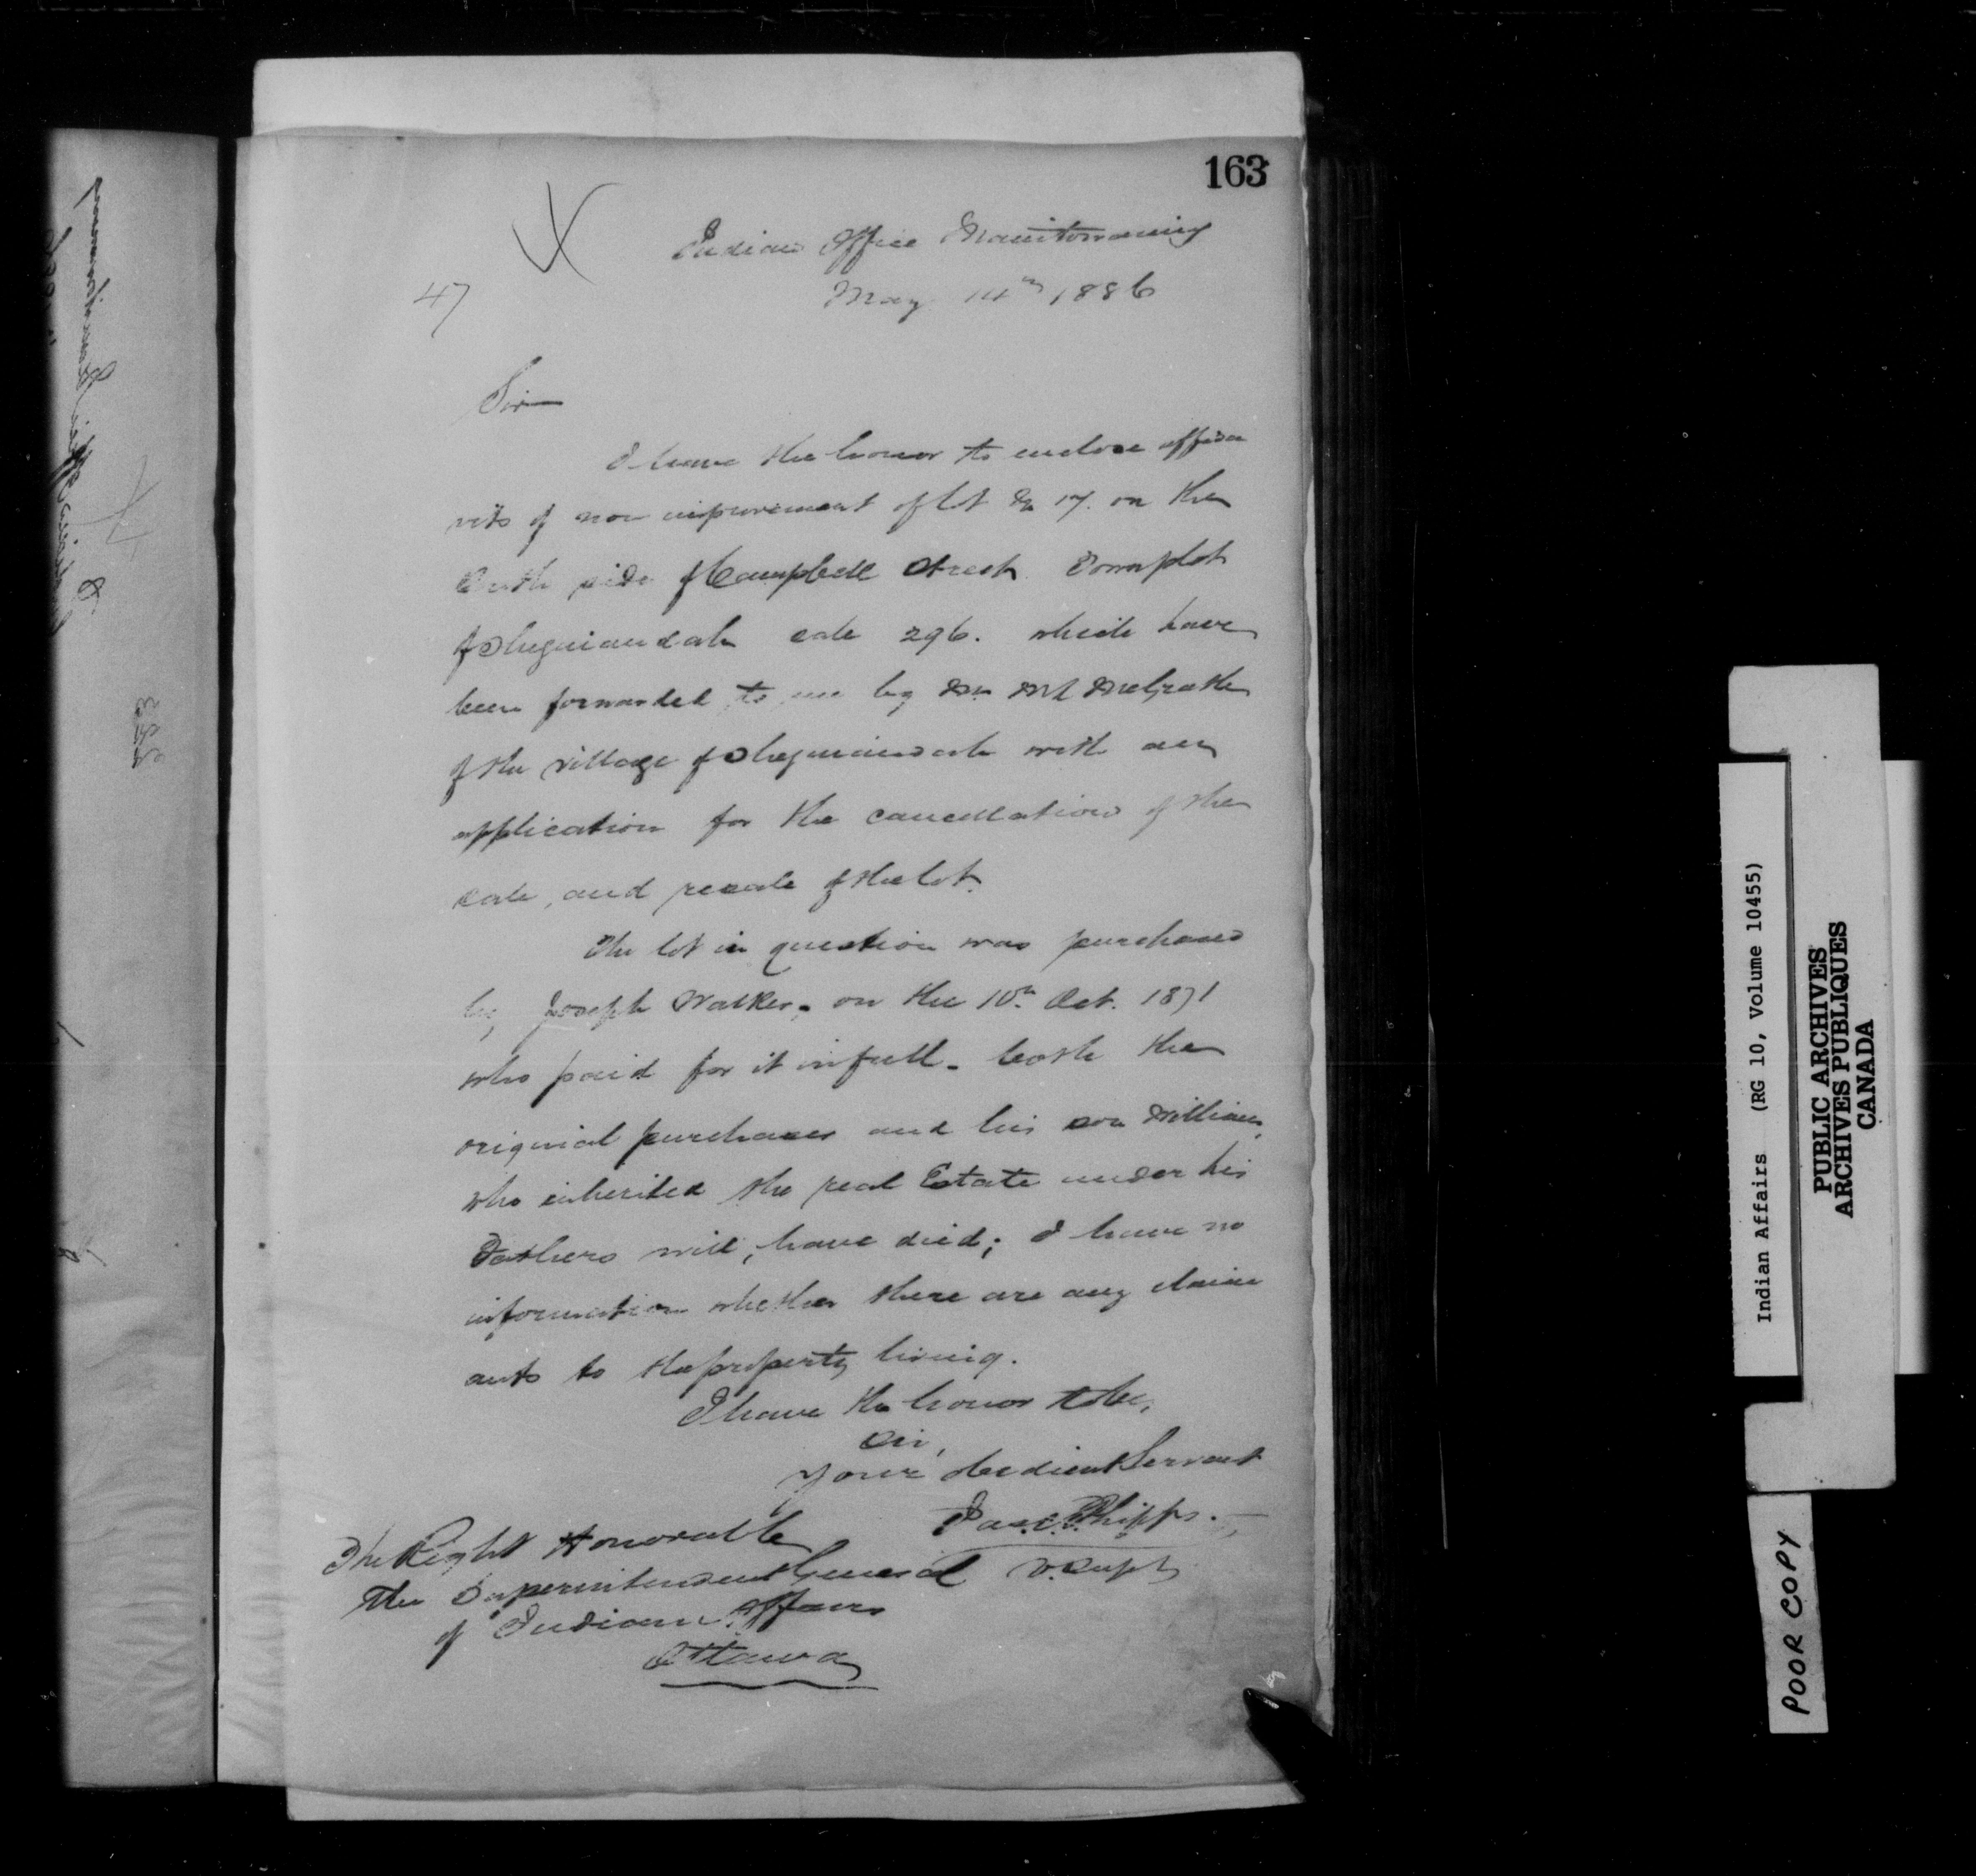 163
Indian Office Manitowaning
47
May 14th 1886
Sir
I have the honor to enclose affida
vits of non improvement of lot No 17. on the
South side of Campbell Street Townplot
of Sheguiandah sale 296. which have
been forwarded to me by Mr McGrath
of the village of Sheguiandah with an
application for the cancellation of the
sale, and resale of the lot.
The lot in question was purchased
by Joseph Walker, on the 10th Oct. 1871
who paid for it in full. both the
original purchaser and his son William,
who inherited the real Estate under his
Fathers will, have died; I have no
information whether there are any claim
ants to the property living.
I have the honor to be,
Sir,
Your obedient Servant
Jas. C. Phipps.
V. Supt
The Right Honorable
The Superintendent General
of Indian Affairs
Ottawa
Indian Affairs (RG 10, Volume 10455)
PUBLIC ARCHIVES
ARCHIVES PUBLIQUES
CANADA
POOR COPY